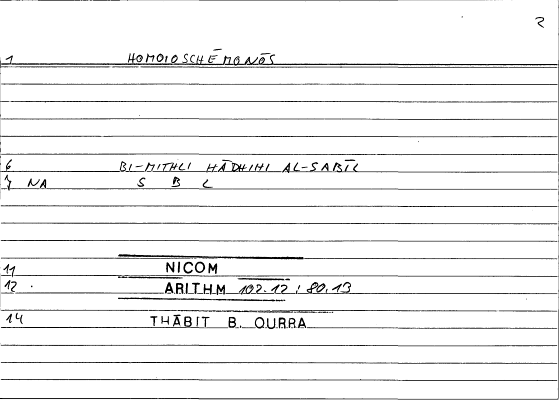 2
1 HOMOIOSCHĒMONŌS
6 BI-MITHLI HĀDHIHI AL-SABĪL
7 NA S B L
11 NICOM
12 ARITHM 102.12 : 80.13
14 THĀBIT B. QURRA